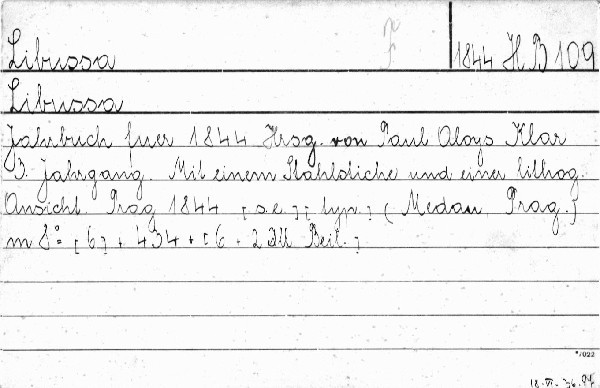 Libussa F 1844 H B 109
Libussa
Jahrbuch fuer 1844 Hrsg. von Paul Aloys Klar
3. Jahrgang. Mit einem Stahlstiche und einer lithog.
Ansicht. Prag 1844 [s.e.] [typ.] (Medau, Prag.)
m 8° = [6] + 434 + [6 + 2 Beil.]
*7022
18. VI. 76.